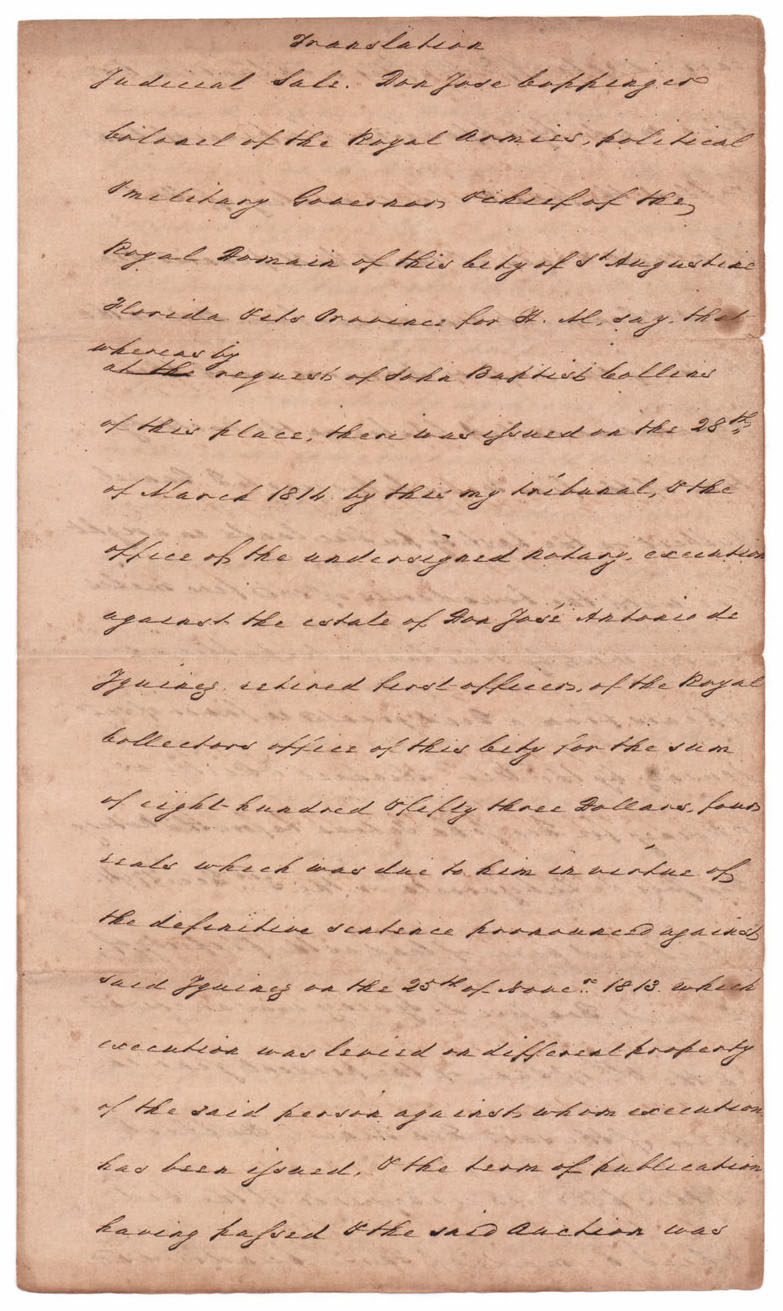 Translation
Judicial Sale. Don Jose Coppinger
Colonel of the Royal Armies, political
& military Governor, & chief of the
Royal Domain of this City of St Augustine
Florida & its Province for H. M, say, that
whereas by
at the request of John Baptist Collins
of this place, there was issued on the 28th
of March 1814 by this my tribunal, & the
office of the undersigned notary, execution
against the estate of Don José Antonio de
Yguinez retired first officer, of the Royal
Collectors office of this City for the sum
of eight hundred & fifty three Dollars, four
reals which was due to him in virtue of
the definitive sentence pronounced against
said Yguinez on the 25th of Novr. 1813 which
execution was levied on different property
of the said person against whom execution
has been issued, & the term of publication
having passed & the said Auction was